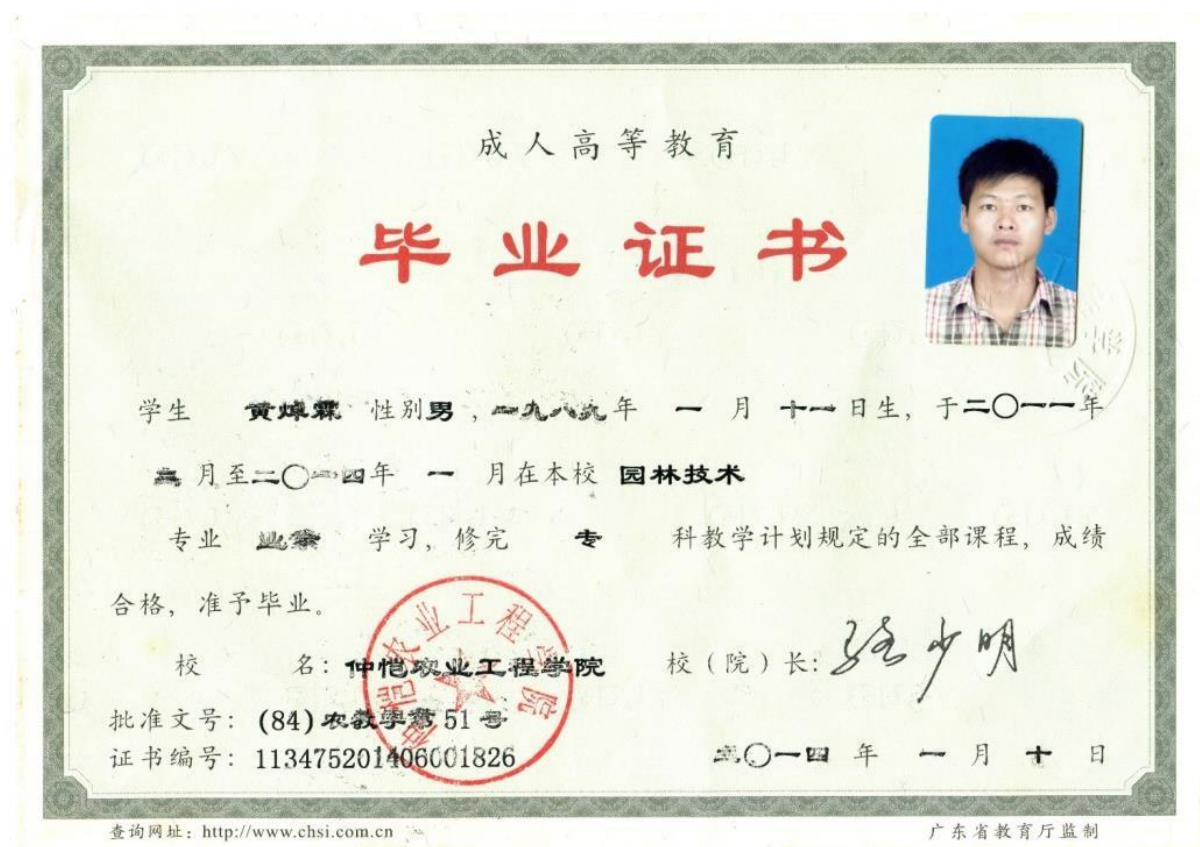 成人高等教育
毕业证书
学生 黄焯霖 性别男，一九八九年 一 月 十一 日生，于二〇一一年
三月至二〇一四年 一 月在本校 园林技术
专业 业余 学习，修完 专 科教学计划规定的全部课程，成绩
合格，准予毕业。
仲恺农业工程学院
校 名：仲恺农业工程学院 校（院）长：骆少明
批准文号：(84)农教学第51号
证书编号：113475201406001826 二〇一四 年 一 月 十 日
查询网址：http://www.chsi.com.cn 广东省教育厅监制